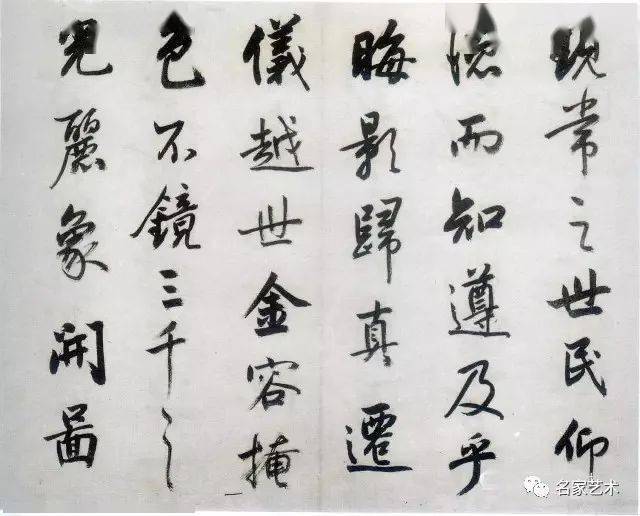 現常之世民仰
德而知遵及乎
晦影歸真遷
儀越世金容掩
色不鏡三千之
光麗象開圖
名家艺术